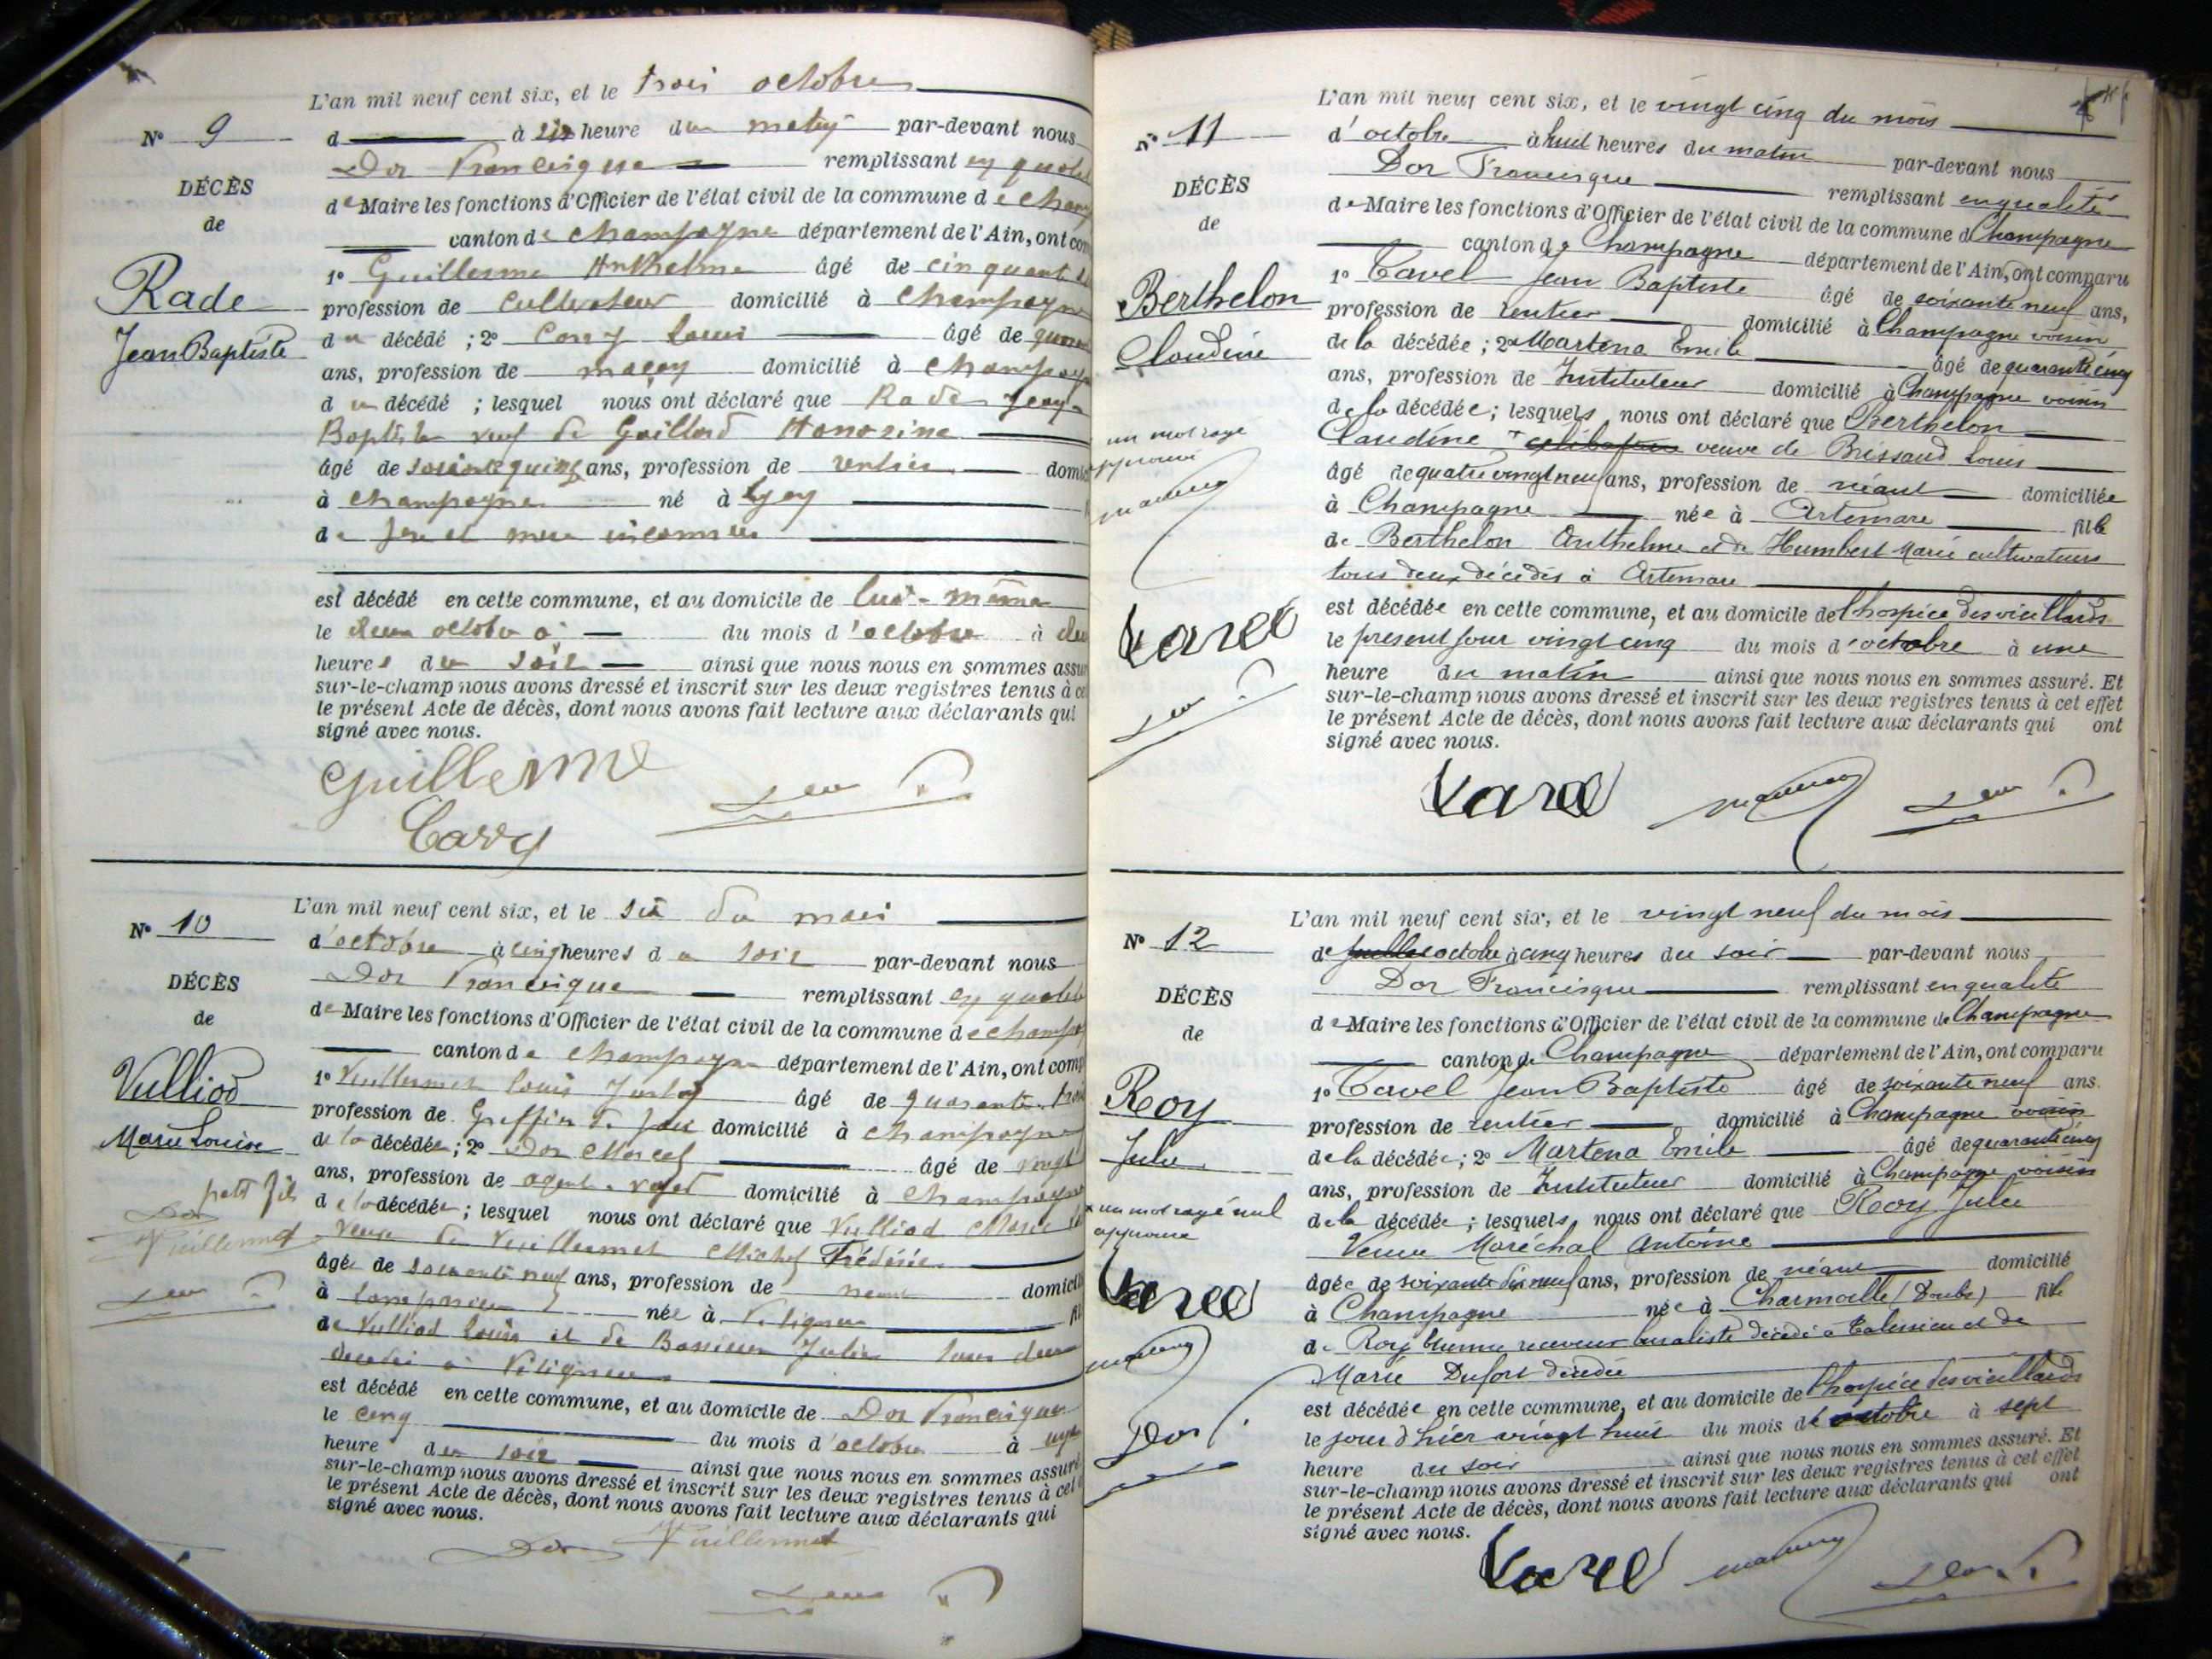 L'an mil neuf cent six, et le trois octobre
N° 9
d à six heure du matin par-devant nous
Dor Francisque remplissant en qualité
DÉCÈS
de Maire les fonctions d'Officier de l'état civil de la commune de Cham
de
canton de Champagne département de l'Ain, ont com
1° Guillerme Anthelme âgé de cinquante
Rade
profession de cultivateur domicilié à Champagne
Jean Baptiste
du décédé ; 2° Carry Louis âgé de quara
ans, profession de maçon domicilié à Champag
du décédé ; lesquel nous ont déclaré que Rade Jean
Baptiste veuf de Gaillard Honorine
âgé de soixante quinze ans, profession de rentier domi
à Champagne né à Lyon
de père et mère inconnus
est décédé en cette commune, et au domicile de lui-même
le deux octobre du mois d'octobre à
heures du soir ainsi que nous nous en sommes assu
sur-le-champ nous avons dressé et inscrit sur les deux registres tenus à ce
le présent Acte de décès, dont nous avons fait lecture aux déclarants qui
signé avec nous.
Guillerme
Carry
L'an mil neuf cent six, et le six du mois
N° 10
d'octobre à cinq heures du soir par-devant nous
Dor Francisque remplissant en qualité
DÉCÈS
de Maire les fonctions d'Officier de l'état civil de la commune de Champa
de
canton de Champagne département de l'Ain, ont comp
1° Vuillermet Louis Justin âgé de quarante trois
Vulliod
profession de Greffier de paix domicilié à Champagne
Marie Louise
de la décédée ; 2° Dor Marcel âgé de vingt
ans, profession de agent-voyer domicilié à Champagne
petit fils
de la décédée ; lesquel nous ont déclaré que Vulliod Marie
Dor
Vuillermet
veuve de Vuillermet Michel Frédéric
âgée de soixante neuf ans, profession de néant domicili
à née à Virigneu
de Vulliod Louis et de Julie tous deux
décédés à Virigneu
est décédé en cette commune, et au domicile de Dor Francisque
le cinq du mois d'octobre à une
heure du soir ainsi que nous nous en sommes assuré
sur-le-champ nous avons dressé et inscrit sur les deux registres tenus à cet
le présent Acte de décès, dont nous avons fait lecture aux déclarants qui
signé avec nous.
Dor Vuillermet
L'an mil neuf cent six, et le vingt cinq du mois
N° 11
d'octobre à huit heures du matin par-devant nous
Dor Francisque remplissant en qualité
DÉCÈS
de Maire les fonctions d'Officier de l'état civil de la commune de Champagne
de
canton de Champagne département de l'Ain, ont comparu
1° Tavel Jean Baptiste âgé de soixante neuf ans,
Berthelon
profession de rentier domicilié à Champagne voisin
Claudine
de la décédée ; 2° Martena Emile âgé de quarante cinq
ans, profession de Instituteur domicilié à Champagne voisin
de la décédée ; lesquels nous ont déclaré que Berthelon
un mot rayé
approuvé
Claudine célibataire veuve de Brissaud Louis
âgé de quatre vingt neuf ans, profession de néant domiciliée
à Champagne née à Artemare fille
de Berthelon Anthelme et de Humbert Marie cultivateurs
tous deux décédés à Artemare
est décédée en cette commune, et au domicile de l'hospice des vieillards
Tavel
le présent jour vingt cinq du mois d'octobre à une
heure du matin ainsi que nous nous en sommes assuré. Et
sur-le-champ nous avons dressé et inscrit sur les deux registres tenus à cet effet
le présent Acte de décès, dont nous avons fait lecture aux déclarants qui ont
signé avec nous.
Tavel
L'an mil neuf cent six, et le vingt neuf du mois
N° 12
de juillet octobre à cinq heures du soir par-devant nous
Dor Francisque remplissant en qualité
DÉCÈS
de Maire les fonctions d'Officier de l'état civil de la commune de Champagne
de
canton de Champagne département de l'Ain, ont comparu
1° Tavel Jean Baptiste âgé de soixante neuf ans.
Roy
profession de rentier domicilié à Champagne voisin
Julie
de la décédée ; 2° Martena Emile âgé de quarante cinq
ans, profession de Instituteur domicilié à Champagne voisin
x un mot rayé nul
approuvé
de la décédée ; lesquels nous ont déclaré que Roy Julie
Veuve Maréchal Antoine
âgée de soixante dix neuf ans, profession de néant domicilié
Tavel
à Champagne née à Charmoille (Doubs) fille
de Roy Etienne receveur buraliste décédé à Talissieu et de
Marie Dufort décédée
est décédée en cette commune, et au domicile de l'hospice des vieillards
Dor
le jour d'hier vingt huit du mois de octobre à sept
heure du soir ainsi que nous nous en sommes assuré. Et
sur-le-champ nous avons dressé et inscrit sur les deux registres tenus à cet effet
le présent Acte de décès, dont nous avons fait lecture aux déclarants qui ont
signé avec nous.
Tavel